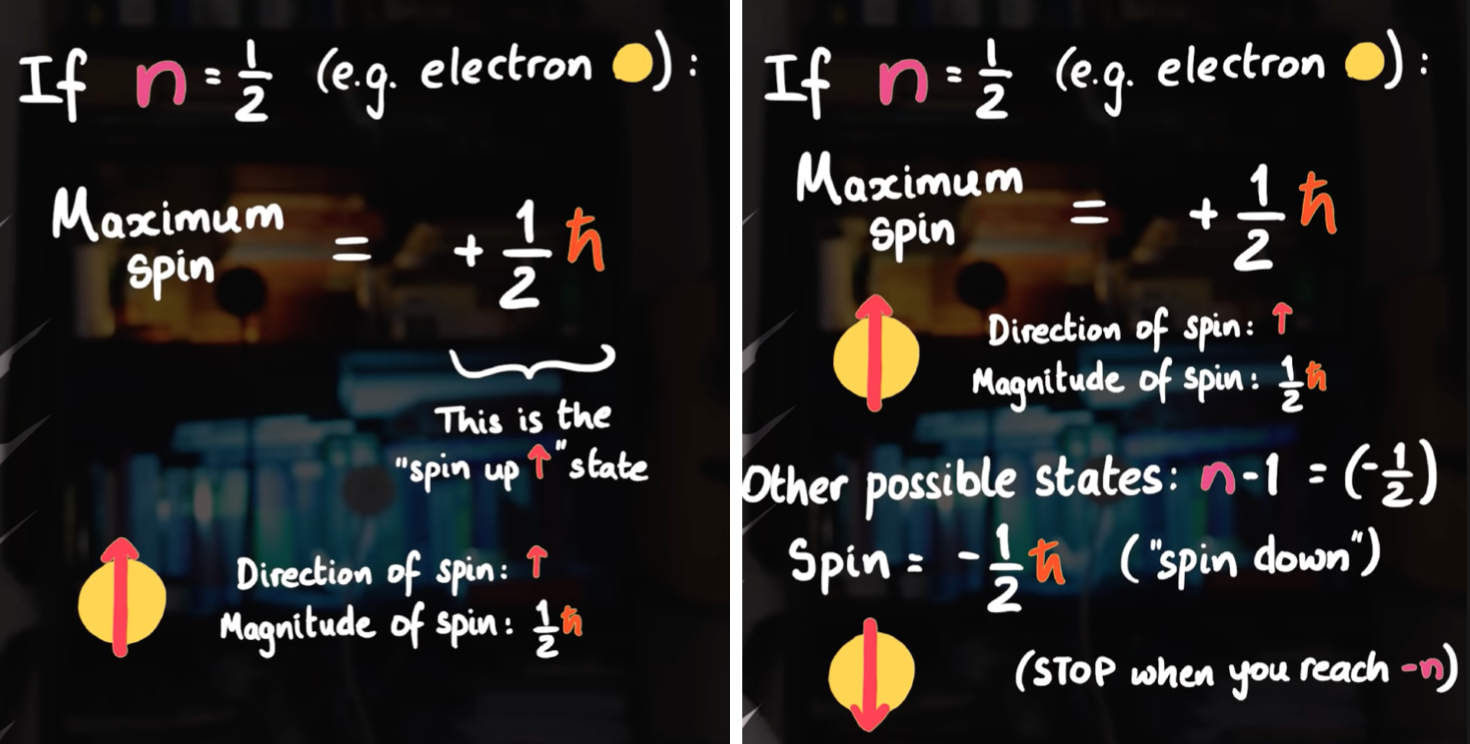 If n = 1/2 (e.g. electron ):
Maximum
spin = + 1/2 ħ
This is the
"spin up ↑" state
Direction of spin: ↑
Magnitude of spin: 1/2 ħ
If n = 1/2 (e.g. electron ):
Maximum
spin = + 1/2 ħ
Direction of spin: ↑
Magnitude of spin: 1/2 ħ
Other possible states: n-1 = (-1/2)
Spin = - 1/2 ħ ("spin down")
(STOP when you reach -n)